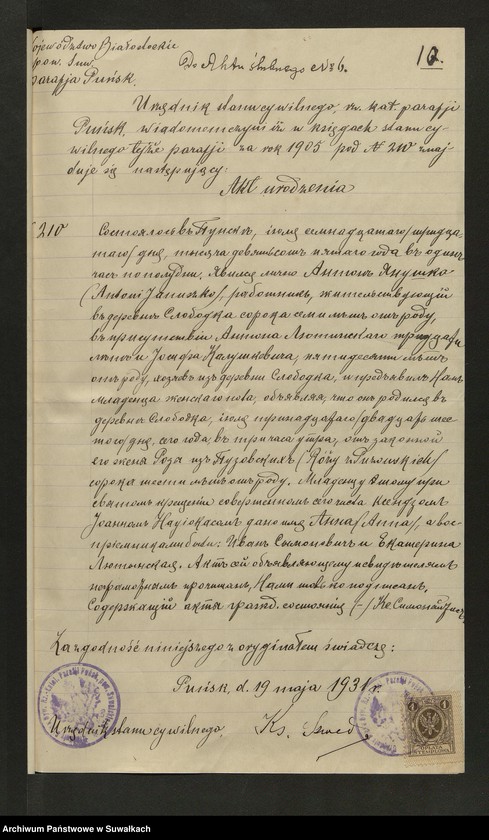 ojewództwo Białostockie
pow. Suw.
parafja Puńsk.
Do Aktu ślubnego № 6.
10.
Urzędnik stanu cywilnego, rz. kat. parafji
Puńsk, wiadomem czyni iż w księgach stanu cy-
wilnego tejże parafji za rok 1905 pod № 210 znaj-
duje się następujący:
Akt urodzenia
210
Состоялось въ Пунскѣ, іюля семнадцатаго /тридца-
таго/ дня, тысяча девятьсотъ пятаго года въ одинъ
часъ пополудни. Явился лично Антонъ Янушко
/Antoni Januszko/, работникъ, жительствующій
въ деревнѣ Слободка сорока семи лѣтъ отъ роду,
въ присутствіи Антона тридцати
лѣтъ и Іосифа пятидесяти лѣтъ
отъ роду, хозяевъ изъ деревни Слободка, и предъявилъ Намъ
младенца женскаго пола, объявляя, что онъ родился въ
деревнѣ Слободка, іюля тринадцатаго /двадцать шес-
таго/ дня, сего года, въ три часа утра, отъ законной
его жены Розы изъ Пузовскихъ /Róży z Puzowskich/
сорока шести лѣтъ отъ роду. Младенцу этому при
святомъ крещеніи совершенномъ сего числа Ксендзомъ
Іоанномъ дано имя Анна /Anna/, а вос-
пріемниками были: Иванъ Сымоновичъ и Екатерина
Актъ сей объявляющему и свидѣтелямъ
неграмотнымъ прочитанъ, Нами только подписанъ.
Содержащій акты гражд. состоянія /-/ Кс.
Za zgodność niniejszego z oryginałem świadczę:
Puńsk, d. 19 maja 1931 r.
Urzędnik stanu cywilnego, Ks. Szwed
1
1
OPŁATA
STEMPLOWA
Archiwum Państwowe w Suwałkach